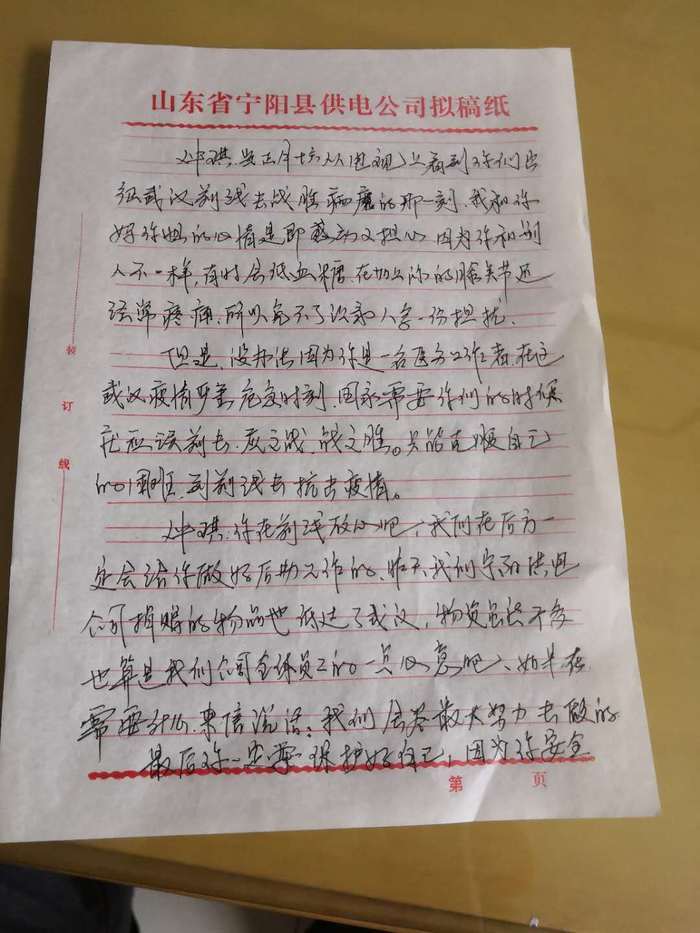 山东省宁阳县供电公司拟稿纸
琪 当正月十五从电视上看到你们出
征武汉前线去战胜病魔的那一刻,我和你
的心情是即感动又担心 因为你和别
人不一样,有时会低血糖,在加上你的关节还
经常疼痛,所以免不了让家人多一份担扰。
但是,没办法因为你是一名医务工作者,在这
武汉疫情严重危急时刻,国家需要你们的时候
就应该前去,应之战,战之胜。只能克服自己
的困难 到前线去抗击疫情。
琪:你在前线放心吧,我们在后方一
定会给你做好后勤工作的,昨天我们宁阳供电
公司捐赠的物品也抵达了武汉,物资虽然不多
也算是我们公司全体员工的一点心意吧、如果在
需要什么,来信说话,我们会尽最大努力去做的
最后你一定要保护好自己,因为你安全
装
订
线
第 页